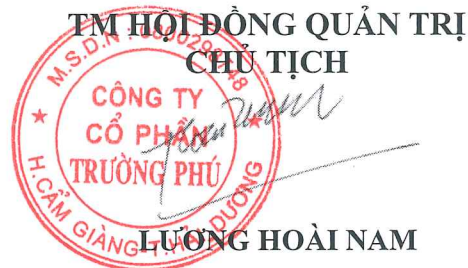 TM HỘI ĐỒNG QUẢN TRỊ
CHỦ TỊCH
M.S.D.N
CÔNG TY
CỔ PHẦN
TRƯỜNG PHÚ
H.CẨM GIÀNG-T.HẢI DƯƠNG
LƯƠNG HOÀI NAM